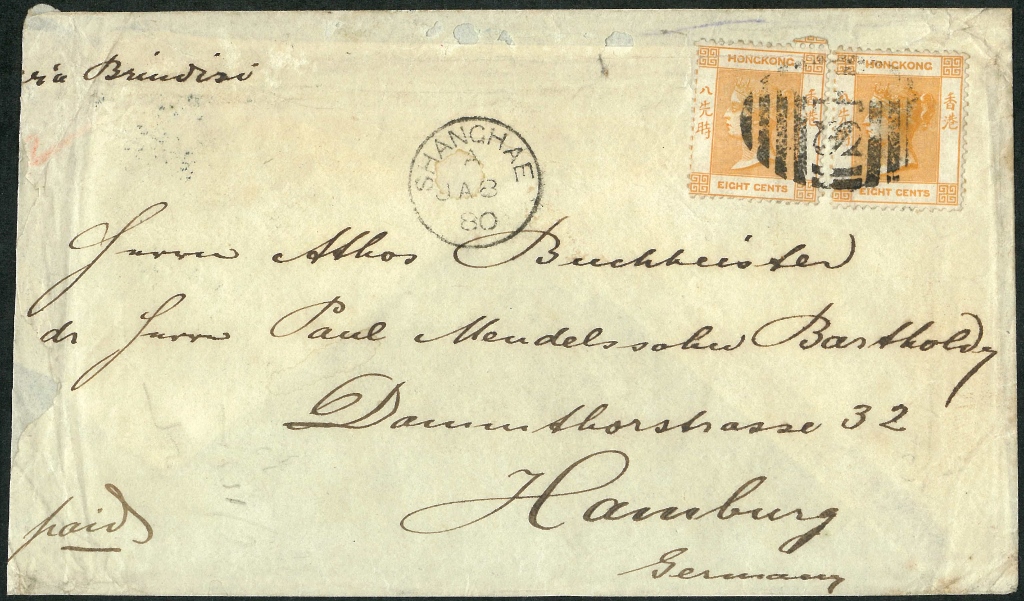 via Brindisi
HONGKONG
HONGKONG
八先時
香港
八先
香港
EIGHT CENTS
EIGHT CENTS
SHANGHAE
A
JA 8
80
Herrn Athos Buchheister
dr Herrn Paul Mendelssohn Bartholdy
Dammthorstrasse 32
Hamburg
Germany
paid